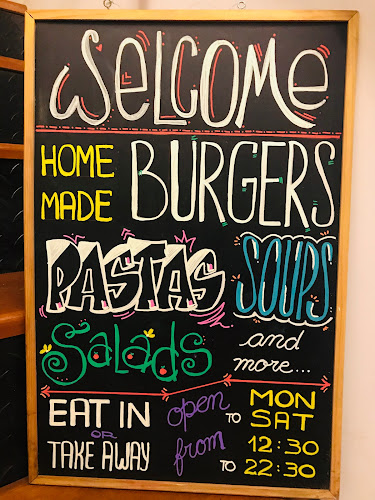 WELCOME
HOME MADE BURGERS
PASTAS SOUPS
Salads and more...
EAT IN OR TAKE AWAY
open from MON TO SAT
12:30 TO 22:30